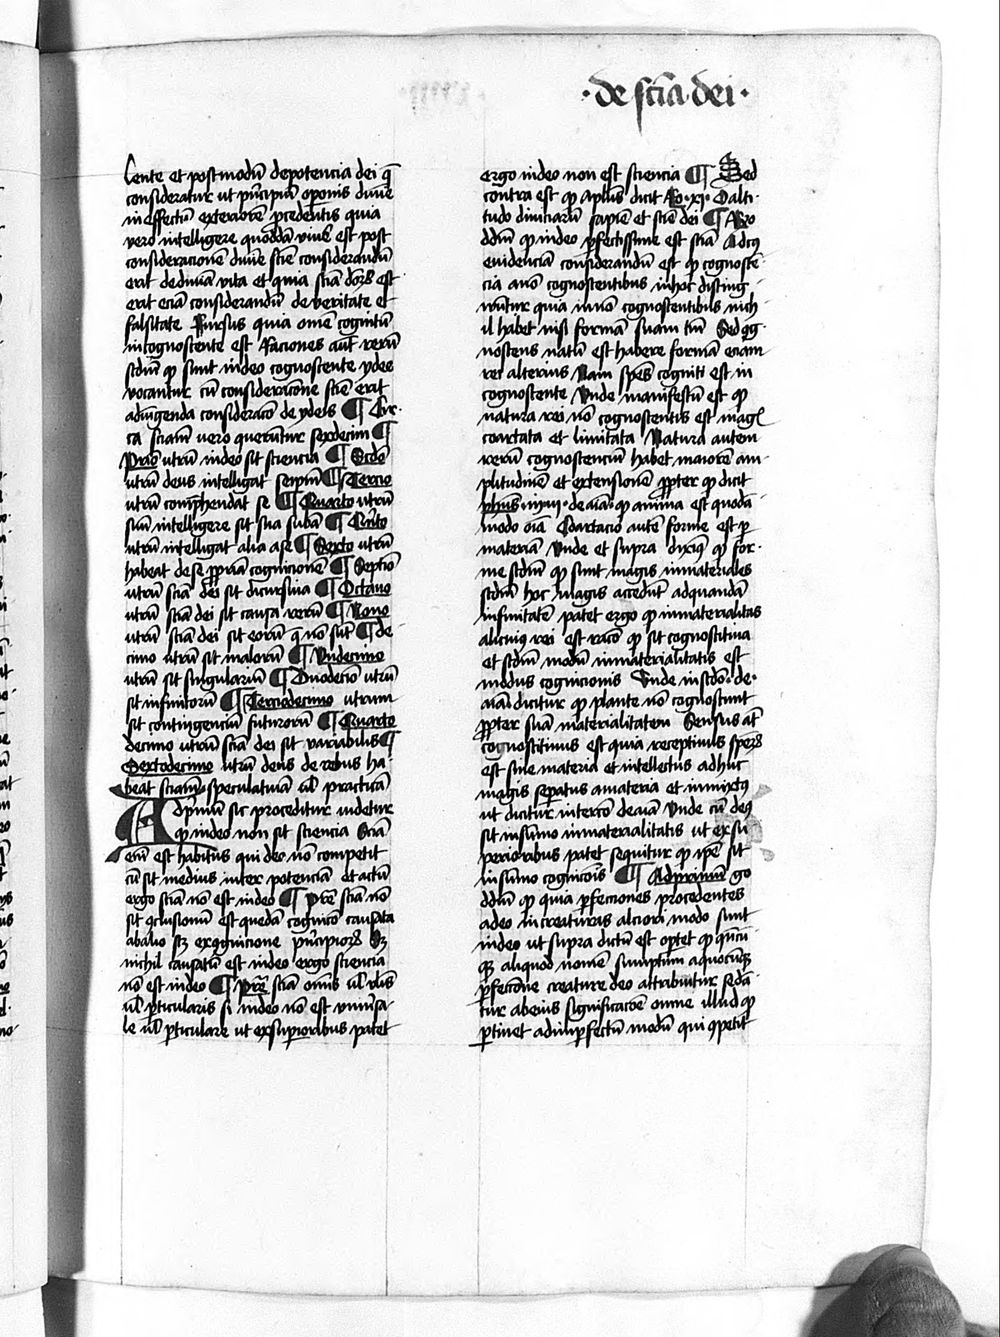 ·de scīa·dei·
lente et postmodū depotencia dei q̄
consideratur ut pⁱncipiū oꝑonis diuīe
in effectū exteriorē ꝓcedentis quia
vero intelligere quoddā viuē est post
consideracionē diuīe sciē considerandū
erit dediuīa vita et quia sciā est
erit eciā considerandū de veritate et
falsitate Rursus quia omē cognitū
incognoscente est Raciones aut̄ rerū
scdm̄ qͥ sunt indeo cognoscente ydee
vocantur cū consideracōne sciē erit
adiūgenda consideracō de ydeis ¶ Cir-
ca sciam vero queruntur sexdecim ¶
Pͥmo utrū indeo sit sciencia ¶ Scdō
utrū deus intelligat seipm̄ ¶ Tercio
utrū comp̄hendat se ¶ Quarto utrū
suū intelligere sit sua subā ¶ Qūto
utrū intelligat alia ase ¶ Sexto utrū
habeat de ꝓpriā cognicionē ¶ Septīo
utrū sciā dei sit dicursiua ¶ Octauo
utrū sciā dei sit causa rerū ¶ Nono
utrū sciā dei sit eorū q̄ nō sūt ¶ de
cimo utrū sit malorū ¶ Undecimo
utrū sit singulariū ¶ Duodecīo utrū
sit infinitorū ¶ Terciodecimo utrum
sit contingenciū futurorū ¶ Quarto
decimo utrū sciā dei sit variabilis ¶
Sextodecimo utrū deus de rebus ha-
beat sciam speculatiuā ul̄ practicā
Adpͥmū sic proceditur uidetur
qͥ indeo non sit sciencia Sciā
enī est habitus qui deo nō competit
cū sit medius inter potenciā et actū
ergo sciā nō est indeo ¶ Pret̄ sciā nō
sit ꝯclusionū est quedā cognicō causata
abalio ex cognicione pⁱncipioꝝ Sꝫ
nichil causatū est indeo ergo sciencia
nō est indeo ¶ Pret̄ sciā om̄is ul̄ vl̄is
ul̄ ꝑticularis si indeo nō est uniūsa-
le ul̄ ꝑticulare ut exsuꝑioribus patet
ergo indeo non est sciencia ¶ Sed
contra est qͥ aplus dicit Ro·xi· O alti-
tudo diuiciarū sapiē et sciē dei ¶ Rͦ
ddm̄ qͥ indeo ꝑfectissime est sciā Adcꝰ
euidenciā considerandū est qͥ cognoscē-
cia anō cognoscentibus inhoc disting-
untur quia nonō cognoscentibus nich-
il habet nisi formā suam tm̄ Sed ꝯg-
noscens natū est habere formā eciam
rei alterius Nam spēs cogniti est in
cognoscente Unde manifestū est qͥ
natura rei nō cognoscentis est magͥ
coartata et limitata Natura autem
rerū cognoscenciū habet maiorē am-
plitudinē et extensionē ꝓpter qͥ dicit
phūs iniiii·de aīa· qͥ anima est quodā-
modo oīa Coartacio autē forme est ꝑ
materiā Unde et supra diximꝰ qͥ for-
me scdm̄ qͥ sunt magis inmateriales
scdm̄ hoc magis accedūt adquandā
infinitatē patet ergo qͥ inmaterialitas
alicuiꝰ rei est racō qͥ sit cognoscitiua
et scdm̄ modū inmaterialitatis est
modus cognicionis Unde inscdō·de·
aīa dicitur qͥ plante nō cognoscunt
ꝓpter suā materialitatem Sensus aūt
cognoscitiuus est quia receptiuus speꝝ
est sine materia et intellectus adhuc
magis seꝑatus amateria et inmixtꝰ
ut dicitur intercō deaīa Unde cū deꝰ
sit insūmo inmaterialitatis ut exsu-
perioribus patet sequitur qͥ ipē sit
insūmo cognicōis ¶ Adprimū ꝫo
ddm̄ qͥ quia ꝑfecciones procedentes
adeo increaturas alciori modo sunt
indeo ut supra dictū est optet qͥ qn̄cū-
qꝫ aliquod nomē sumptum aquocūqꝫ
ꝑfectōne creature deo attribuitur sedā-
tur abeius significacōe omne illud qͥ
ꝑtinet adimꝑfectū modū qui ꝯpetit